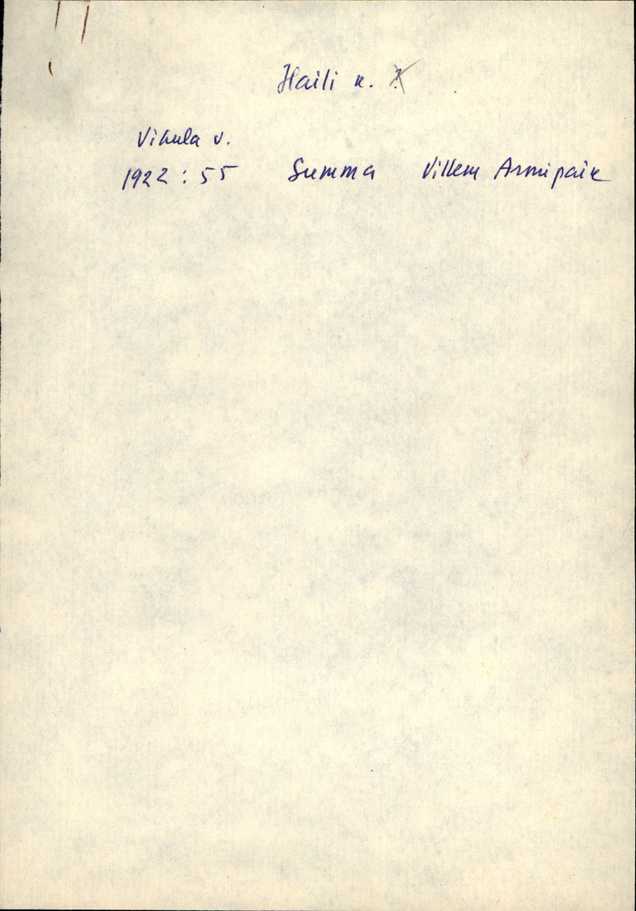 Haili k. ?
Vihula v.
1922 : 55 Summa Villem Armipaik